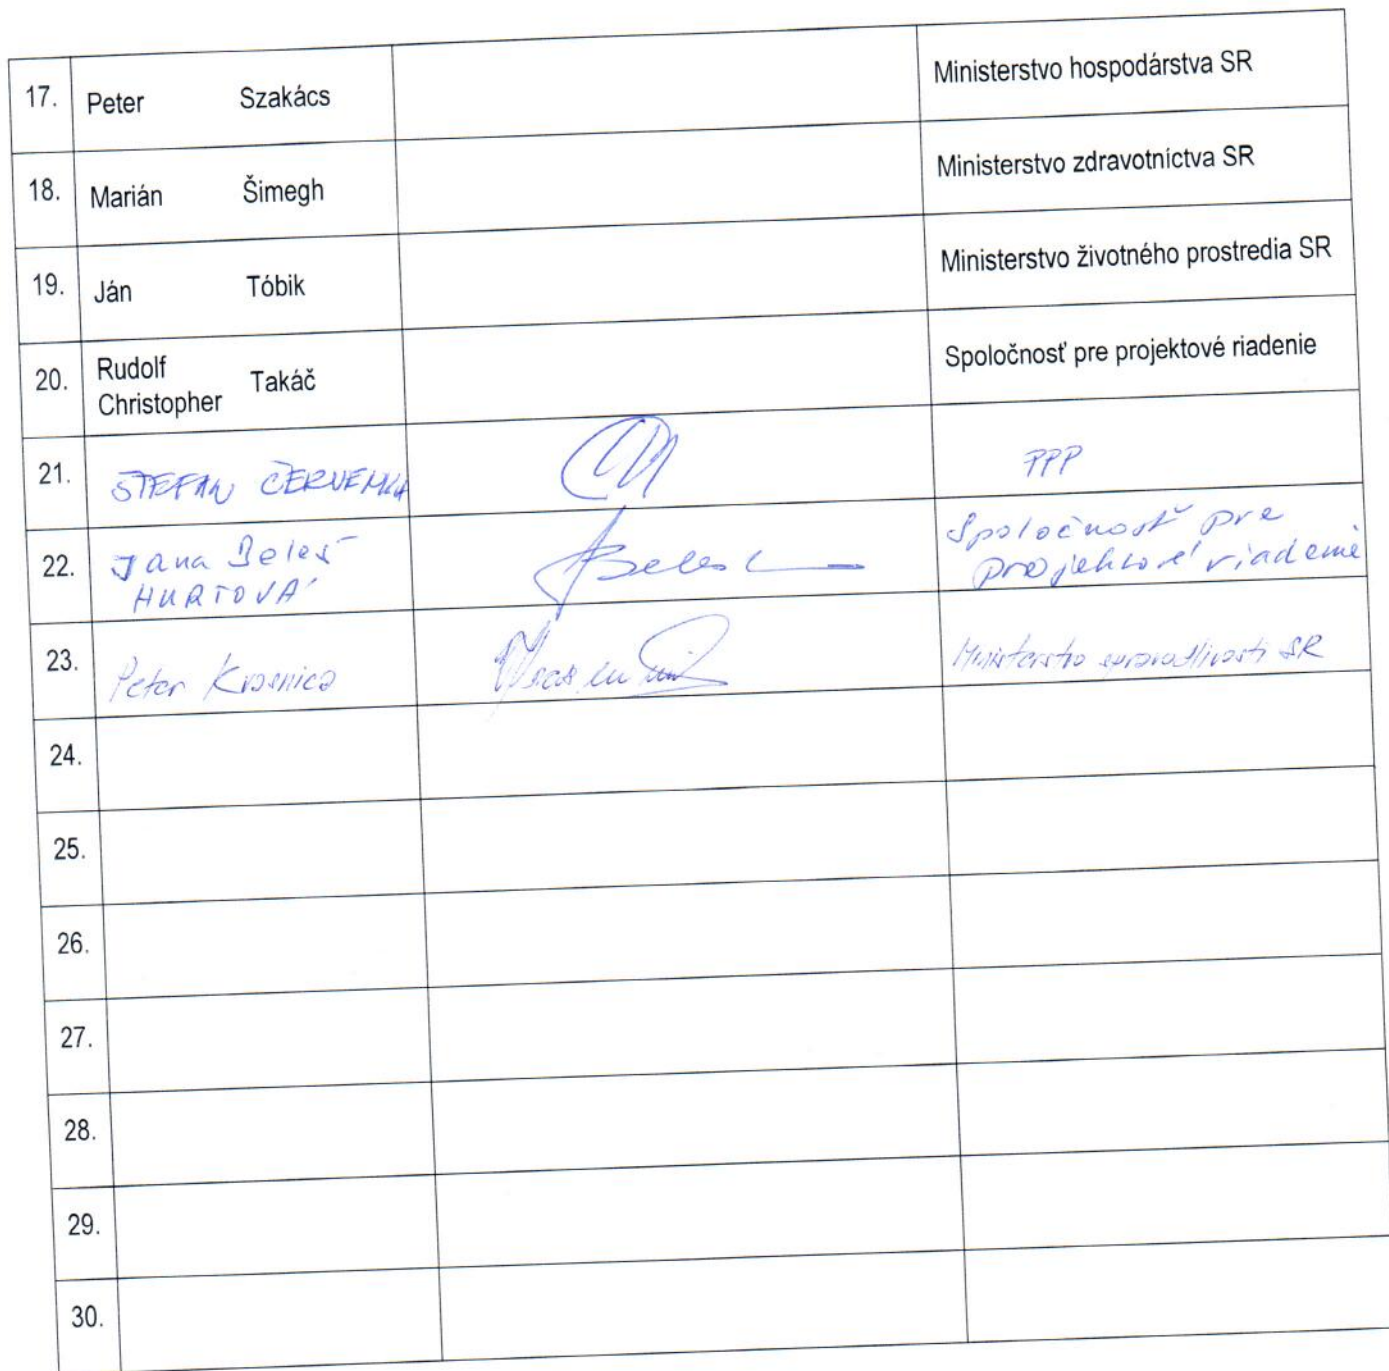 17. Peter Szakács Ministerstvo hospodárstva SR
18. Marián Šimegh Ministerstvo zdravotníctva SR
19. Ján Tóbik Ministerstvo životného prostredia SR
20. Rudolf Christopher Takáč Spoločnosť pre projektové riadenie
21. STEFAN PPP
22. Jana Beleš HURTOVÁ Spoločnosť pre projektové riadenie
23. Peter Krasnica Ministerstvo spravodlivosti SR
24.
25.
26.
27.
28.
29.
30.